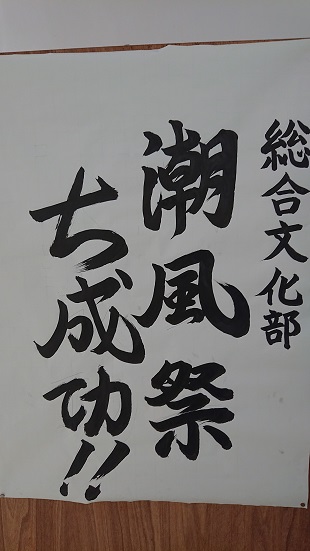 総合文化部
潮風祭
大成功!!